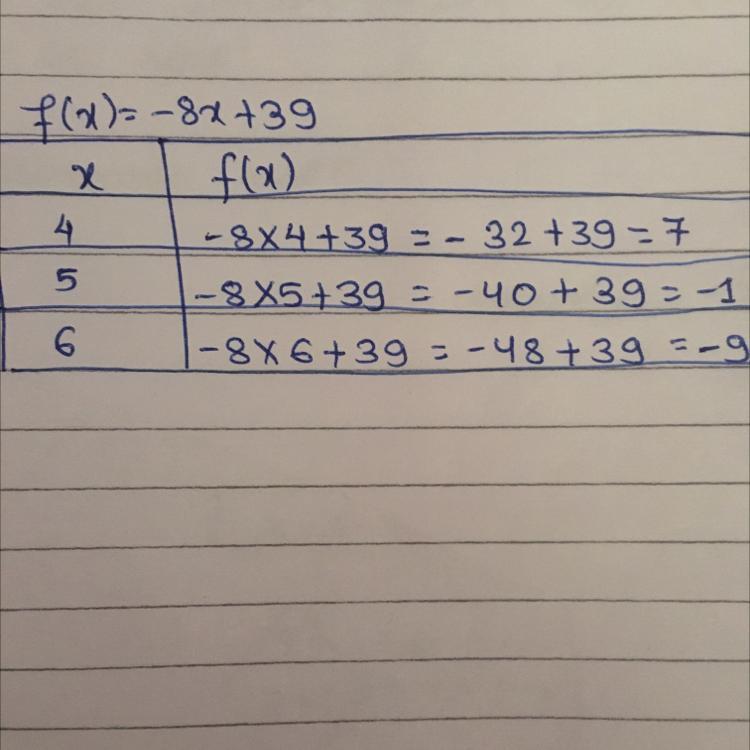 f(x)= -8x+39
x f(x)
4 -8×4+39 = - 32+39=7
5 -8×5+39 = -40+39=-1
6 -8×6+39 = -48+39 =-9